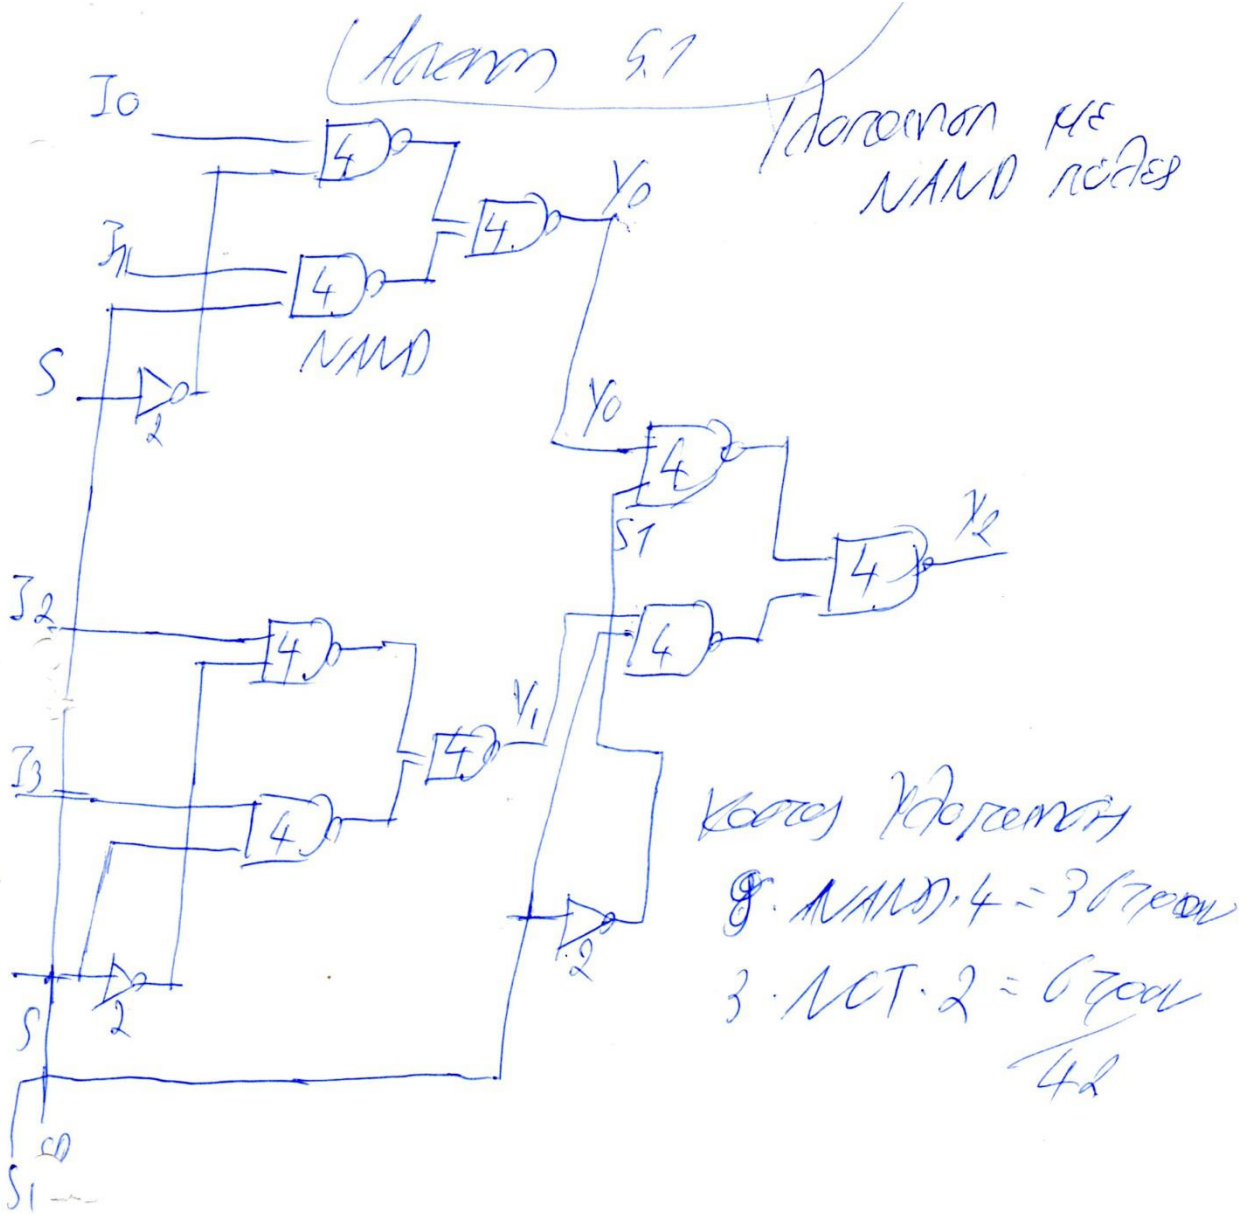 Άσκηση 5.1
Υλοποίηση με
NAND πύλες
I0
4
Y0
4
I1
4
NAND
S
2
Y0
4
S1
Y2
4
I2
4
4
Y1
4
I3
4
Κόστος Υλοποίησης
9. NAND.4 = 36 τραν
2
3. NOT. 2 = 6 τραν
S
2
42
S0
S1